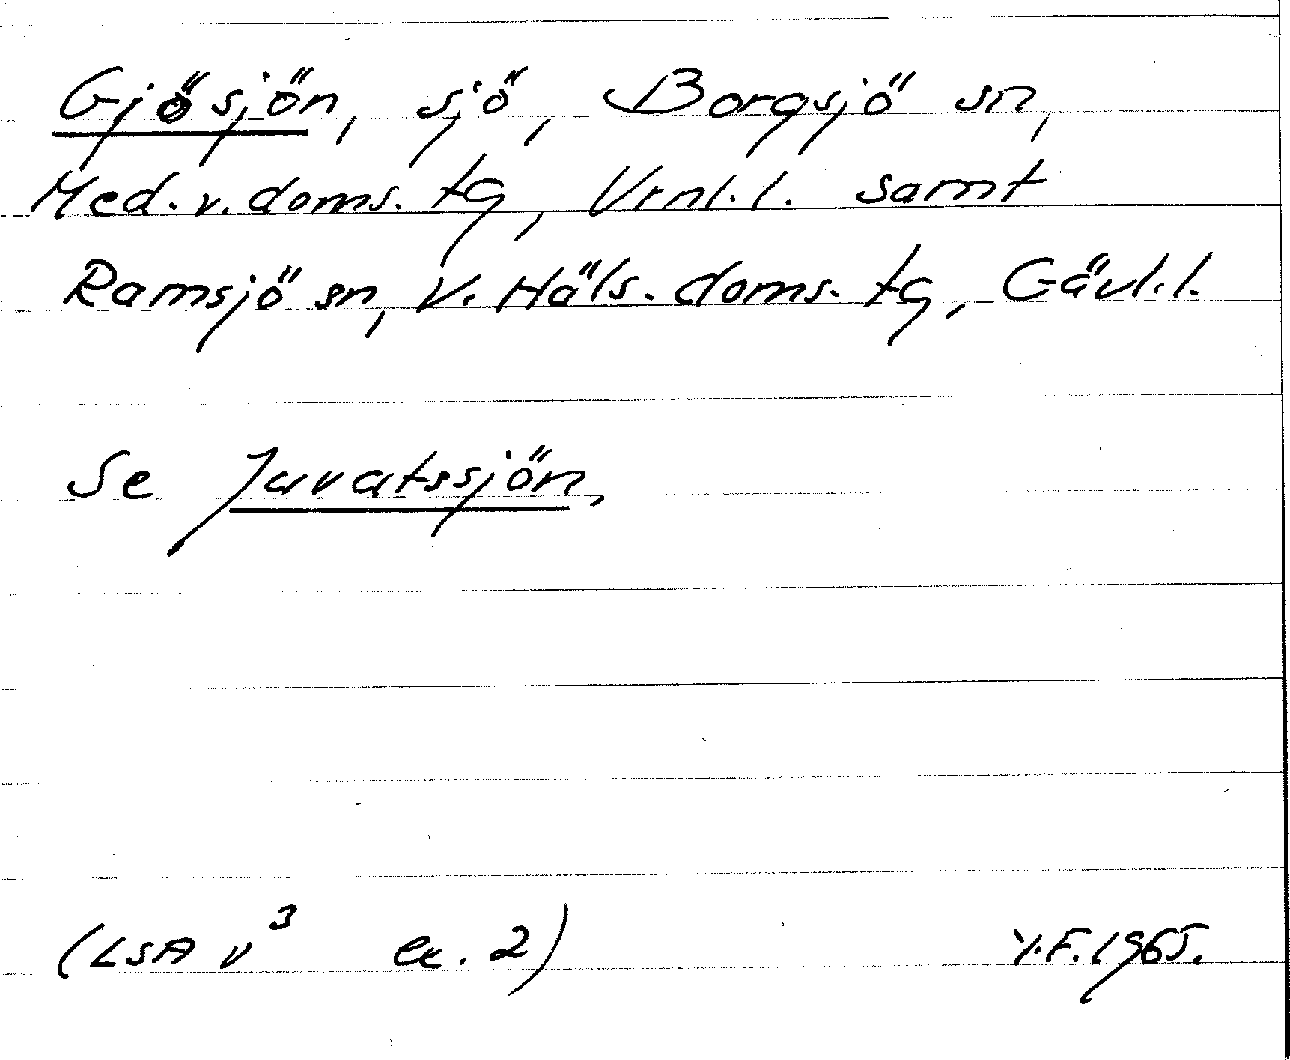 Gjösjön, sjö, Borgsjö sn,
Med. v. doms. tg, Vrnl. l. samt
Ramsjö sn, V. Häls. doms. tg, Gävl. l.
Se Juvatssjön,
(LSA v³ ex. 2) Y.F. 1965.